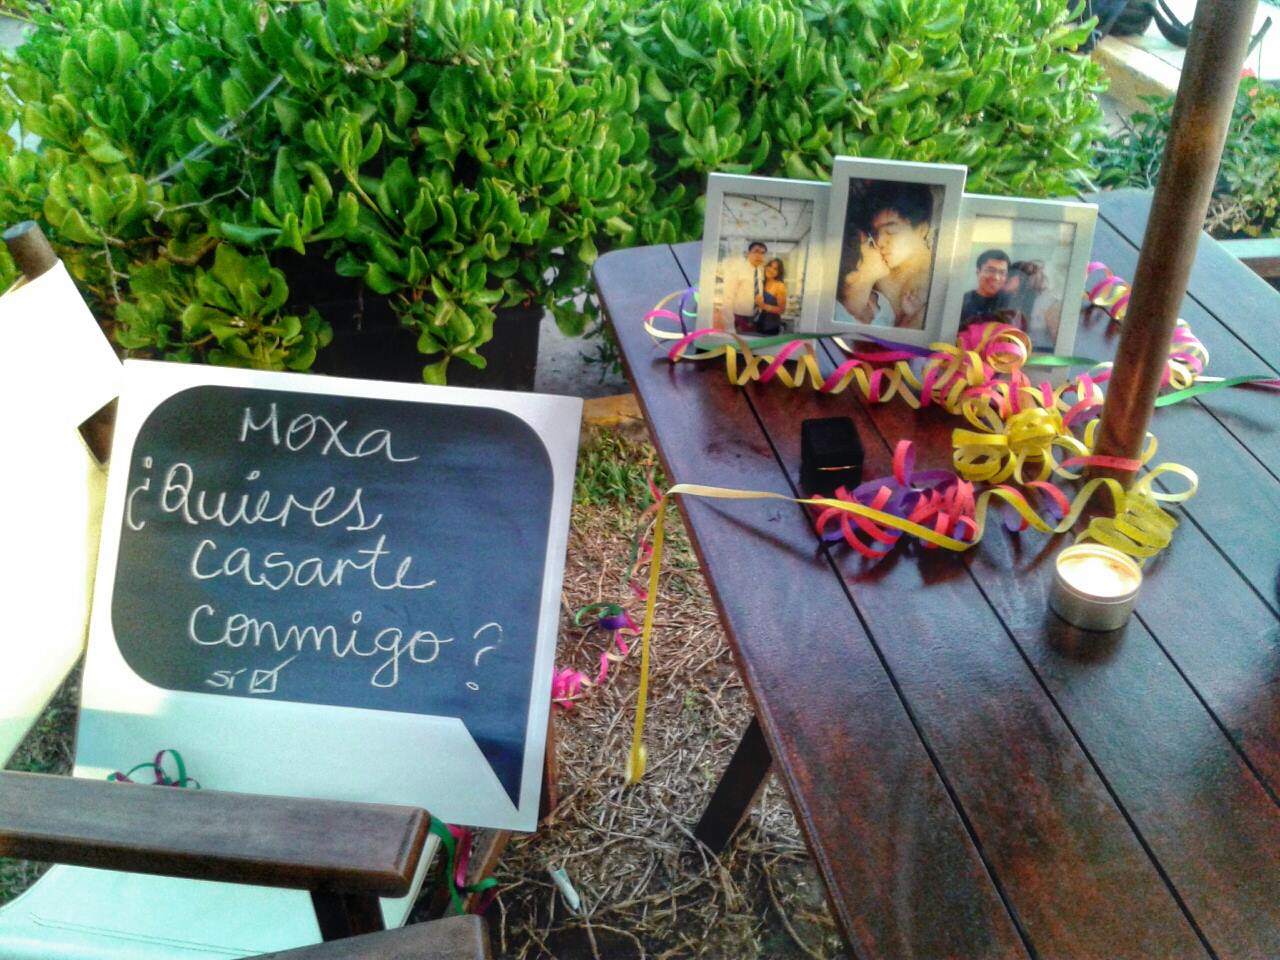 Moxa
¿Quieres
casarte
conmigo?
sí ☑